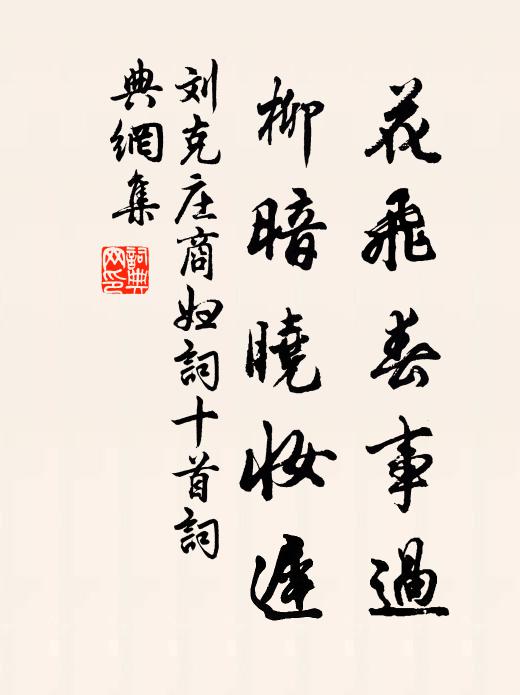 花飛春事過
柳暗曉妝遲
刘克庄商妲詞十首詞
典網集
詞典網印